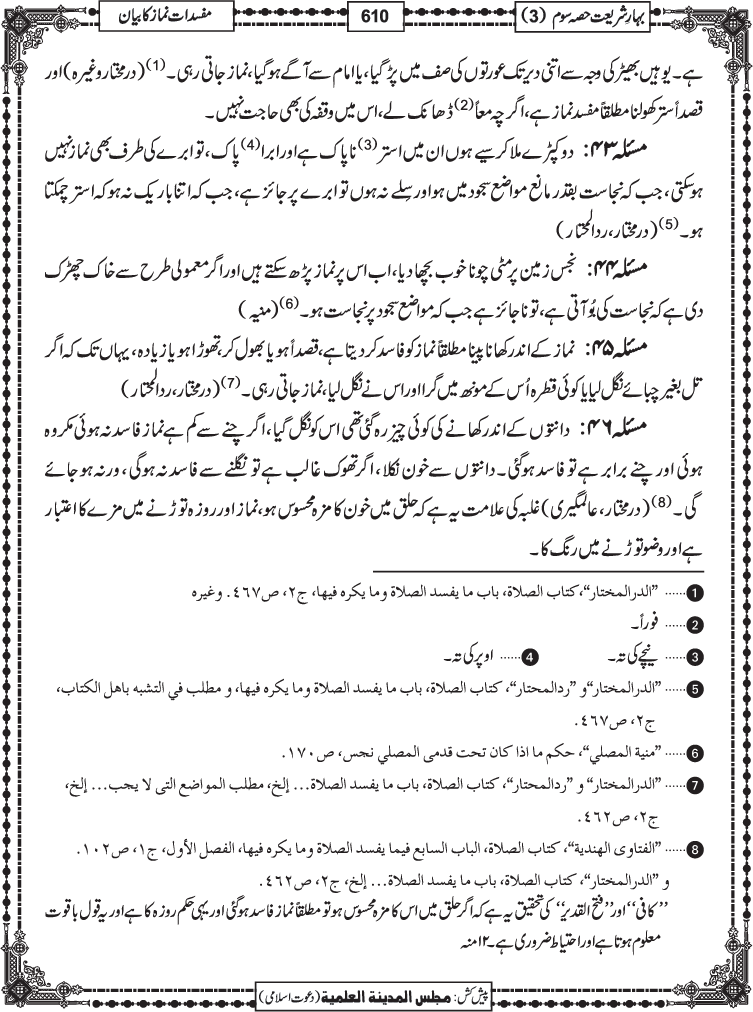 بہارِ شریعت حصہ سوم (3)
610
مفسدات نماز کا بیان
ہے۔ یوہیں بھیڑ کی وجہ سے اتنی دیر تک عورتوں کی صف میں پڑ گیا، یا امام سے آگے ہوگیا، نماز جاتی رہی۔(1) (درمختار وغیرہ) اور
قصداً ستر کھولنا مطلقاً مفسد نماز ہے، اگرچہ معاً(2) ڈھانک لے، اس میں وقفہ کی بھی حاجت نہیں۔
مسئلہ ۴۳: دو کپڑے ملا کر سیے ہوں ان میں استر(3) ناپاک ہے اور ابرا(4) پاک، تو ابرے کی طرف بھی نماز نہیں
ہوسکتی، جب کہ نجاست بقدر مانع مواضع سجود میں ہو اور سِلے نہ ہوں تو ابرے پر جائز ہے، جب کہ اتنا باریک نہ ہو کہ استر چمکتا
ہو۔(5) (درمختار، ردالمحتار)
مسئلہ ۴۴: نجس زمین پر مٹی چونا خوب بچھا دیا، اب اس پر نماز پڑھ سکتے ہیں اور اگر معمولی طرح سے خاک چھڑک
دی ہے کہ نجاست کی بُو آتی ہے، تو ناجائز ہے جب کہ مواضع سجود پر نجاست ہو۔(6) (منیہ)
مسئلہ ۴۵: نماز کے اندر کھانا پینا مطلقاً نماز کو فاسد کر دیتا ہے، قصداً ہو یا بھول کر، تھوڑا ہو یا زیادہ، یہاں تک کہ اگر
تل بغیر چبائے نگل لیا یا کوئی قطرہ اُس کے مونھ میں گرا اور اس نے نگل لیا، نماز جاتی رہی۔(7) (درمختار، ردالمحتار)
مسئلہ ۴۶: دانتوں کے اندر کھانے کی کوئی چیز رہ گئی تھی اس کو نگل گیا، اگر چنے سے کم ہے نماز فاسد نہ ہوئی مکروہ
ہوئی اور چنے برابر ہے تو فاسد ہوگئی۔ دانتوں سے خون نکلا، اگر تھوک غالب ہے تو نگلنے سے فاسد نہ ہوگی، ورنہ ہو جائے
گی۔(8) (درمختار، عالمگیری) غلبہ کی علامت یہ ہے کہ حلق میں خون کا مزہ محسوس ہو، نماز اور روزہ توڑنے میں مزے کا اعتبار
ہے اور وضو توڑنے میں رنگ کا۔
1 ...... ”الدرالمختار“، کتاب الصلاة، باب ما یفسد الصلاة وما یکره فیها، ج٢، ص٤٦٧. وغیره
2 ...... فوراً۔
3 ...... نیچے کی تہ۔ 4 ...... اوپر کی تہ۔
5 ...... ”الدرالمختار“ و ”ردالمحتار“، کتاب الصلاة، باب ما یفسد الصلاة وما یکره فیها، و مطلب في التشبه باهل الکتاب،
ج٢، ص٤٦٧.
6 ...... ”منیة المصلي“، حکم ما اذا کان تحت قدمی المصلي نجس، ص١٧٠.
7 ...... ”الدرالمختار“ و ”ردالمحتار“، کتاب الصلاة، باب ما یفسد الصلاة... إلخ، مطلب المواضع التی لا یجب... إلخ،
ج٢، ص٤٦٢.
8 ...... ”الفتاوی الهندیة“، کتاب الصلاة، الباب السابع فیما یفسد الصلاة وما یکره فیها، الفصل الأول، ج١، ص١٠٢.
و ”الدرالمختار“، کتاب الصلاة، باب ما یفسد الصلاة... إلخ، ج٢، ص٤٦٢.
”کافی“ اور ”فتح القدیر“ کی تحقیق یہ ہے کہ اگر حلق میں اس کا مزہ محسوس ہو تو مطلقاً نماز فاسد ہوگئی اور یہی حکم روزہ کا ہے اور یہ قول باقوت
معلوم ہوتا ہے اور احتیاط ضروری ہے۔ ۱۲ منہ
پیش کش: مجلس المدينة العلمية (دعوت اسلامی)